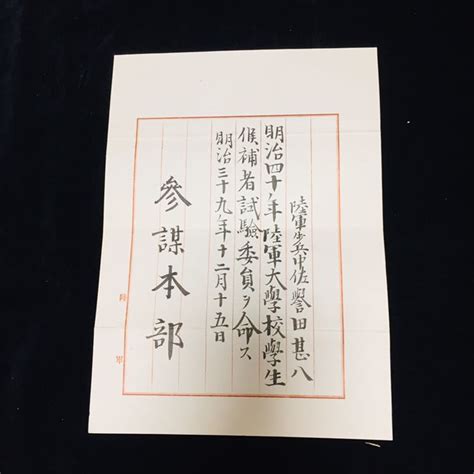 陸軍歩兵中佐譽田甚八
明治四十年陸軍大學校學生
候補者試驗委員ヲ命ス
明治三十九年十二月十五日
參謀本部
陸軍